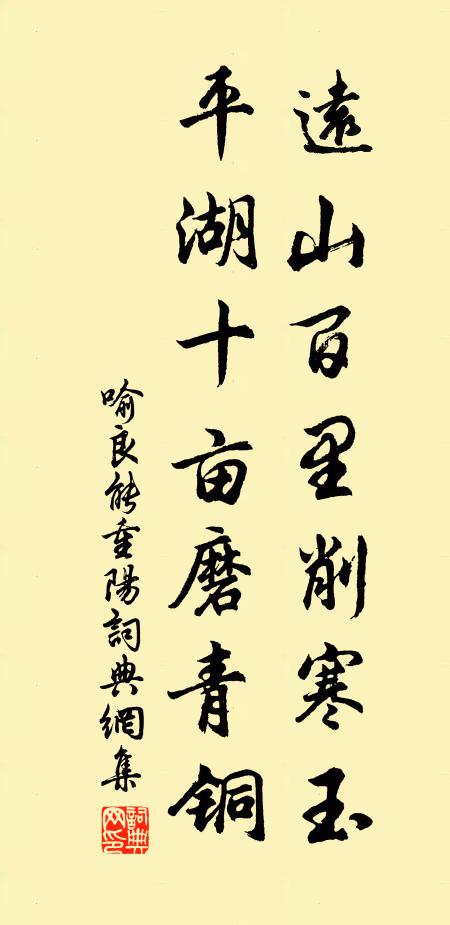 遠山百里削寒玉
平湖十亩磨青铜
喻良能重陽詞典網集
詞典網印